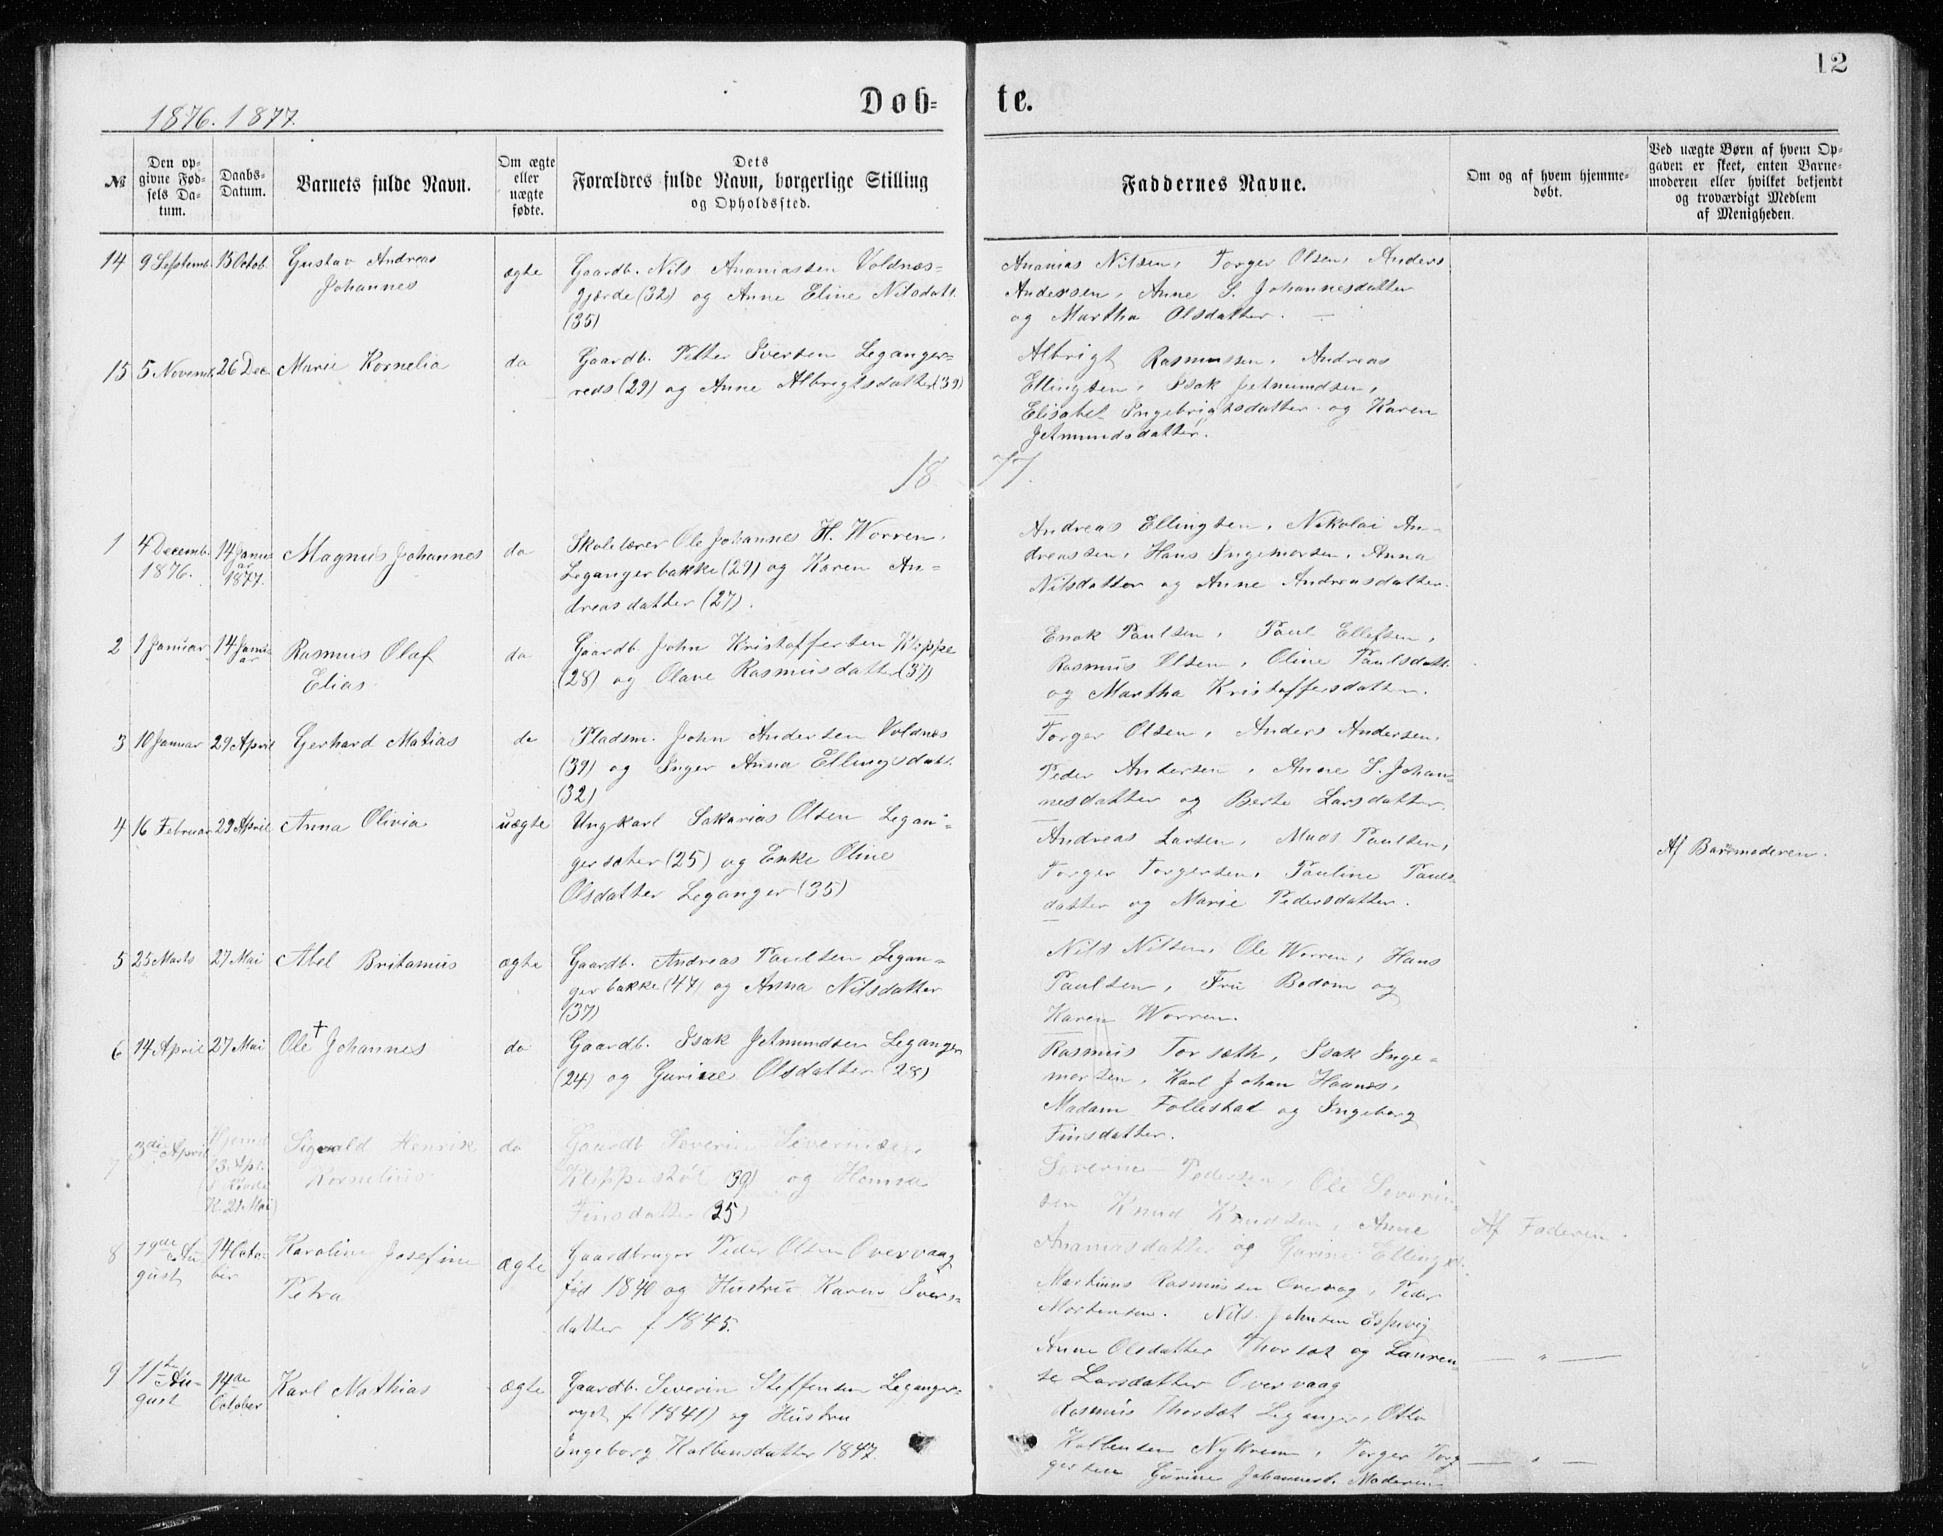 12
1876. 1877.
Døb-
te.
№
Den op-
givne Fød-
sels Da-
tum.
Daabs-
Datum.
Barnets fulde Navn.
Om ægte
eller
uægte
fødte.
Dets
Forældres fulde Navn, borgerlige Stilling
og Opholdssted.
Faddernes Navne.
Om og af hvem hjemme-
døbt.
Ved uægte Børn af hvem Op-
gaven er skeet, enten Barne-
moderen eller hvilket bekjendt
og troværdigt Medlem
af Menigheden.
14 9 Septemb. 15 Octob. Gustav Andreas
Johannes
ægte
Gaardb. Nils Ananiassen Voldnæs-
gjærde (32) og Anne Eline Nilsdatt.
(35)
Ananias Nilsen, Torger Olsen, Anders
Andersen, Anne S. Johannesdatter
og Martha Olsdatter.
15 5 Novemb. 26 Dec. Marie Kornelia
do
Gaardb. Petter Iversen Leganger-
reds (29) og Anne Albrigtsdatter (39)
Albrigt Rasmussen, Andreas
Ellingsen, Isak Jetmundsen,
Elisabet Ingebrigtsdatter og Karen
Jetmundsdatter.
1877.
1 4 Decemb.
1876.
14 Janu-
ar
1877.
Magnus Johannes
do
Skolelærer Ole Johannes H. Worren,
Legangerbakke (29) og Karen An-
dreasdatter (27).
Andreas Ellingsen, Nikolai An-
dreassen, Hans Ingemorsen, Anna
Nilsdatter og Anne Andreasdatter.
2 1 Januar 14 Janu-
ar
Rasmus Olaf
Elias
do
Gaardb. John Kristoffersen Kleppe
(28) og Olave Rasmusdatter (37)
Enok Paulsen, Paul Ellefsen,
Rasmus Olsen, Oline Paulsdatt.
og Martha Kristoffersdatter.
3 10 Januar 29 April Gerhard Matias
do
Pladsm. John Andersen Voldnæs
(39) og Inger Anna Ellingsdatt.
(32)
Torger Olsen, Anders Andersen,
Peder Andersen, Anne S. Johan-
nesdatter og Berte Larsdatter.
4 16 Februar 29 April Anna Olivia
uægte
Ungkarl Sakarias Olsen Legan-
gersæter (25) og Enke Oline
Olsdatter Leganger (35)
Andreas Larsen, Mads Paulsen,
Torger Torgersen, Pauline Pauls-
datter og Marie Pedersdatter.
Af Barnemoderen.
5 25 Marts 27 Mai Abel Britanius
ægte
Gaardb. Andreas Paulsen Legan-
gerbakke (47) og Anna Nilsdatter
(37)
Nils Nilsen, Ole Worren, Hans
Paulsen, Fru Bodom og
Karen Worren.
6 14 April 27 Mai Ole † Johannes
do
Gaardb. Isak Jetmundsen Leganger
(24) og Gurine Olsdatter (28)
Rasmus Torsæth, Isak Inge-
morsen, Karl Johan Haanæs,
Madam Follestad og Ingeborg
Finsdatter.
7 3die April
Hjemd.
13 Apr.
K. 21 Mai
Sigvald Henrik
Kornelius
do
Gaardb Severin Severinsen
Kleppestøl (39) og Hanna
Finsdatter (35)
Severin Pedersen, Ole Severin-
sen Knud Knudsen, Anne
Ananiasdatter og Gurine Ellingsd.
Af Faderen.
8 19de Au-
gust
14 Octo-
ber
Karoline Josefine
Petra
ægte
Gaardbruger Peder Olsen Overvaag
fød 1840 og Hustru Karen Ivers-
datter f. 1845.
Martinus Rasmussen Overvaag, Peder
Mortensen. Nils Johnsen Espevig
Anne Olsdatter Thorsæt og Lauren-
se Larsdatter Overvaag
— " —
9 11te Au-
gust
14de
October
Karl Mathias
ægte
Gaardb. Severin Steffensen Leganger-
f. (1841) og Hustru
Ingeborg Kolbensdatter 1847.
Rasmus Thorsæt Leganger, Otto
Kolbensen Nykrem, Torger Torg
gersen Gurine Johannesd. Moderen
— " —